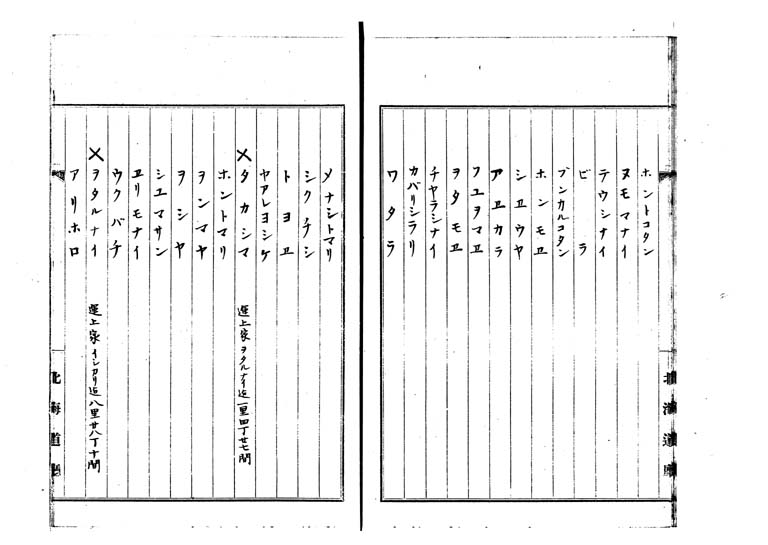 ホントコタン
ヌモマナイ
テウシナイ
ビラ
ブンカルコタン
ホンモヱ
シユウヤ
アヱカラ
フユヲマヱ
ヲタモヱ
チヤラシナイ
カバリシラリ
ワタラ
北海道廳
メナシトマリ
シクチシ
トヨヱ
ヤアレヨシケ
×タカシマ 運上家ヲタルナイ迄一里四丁廿七間
ホントマリ
ヲンマヤ
ヲシヤ
シユマサン
ヱリモナイ
ウクバチ
×ヲタルナイ 運上家イシカリ迄八里廿八丁十間
アリホロ
北海道廳